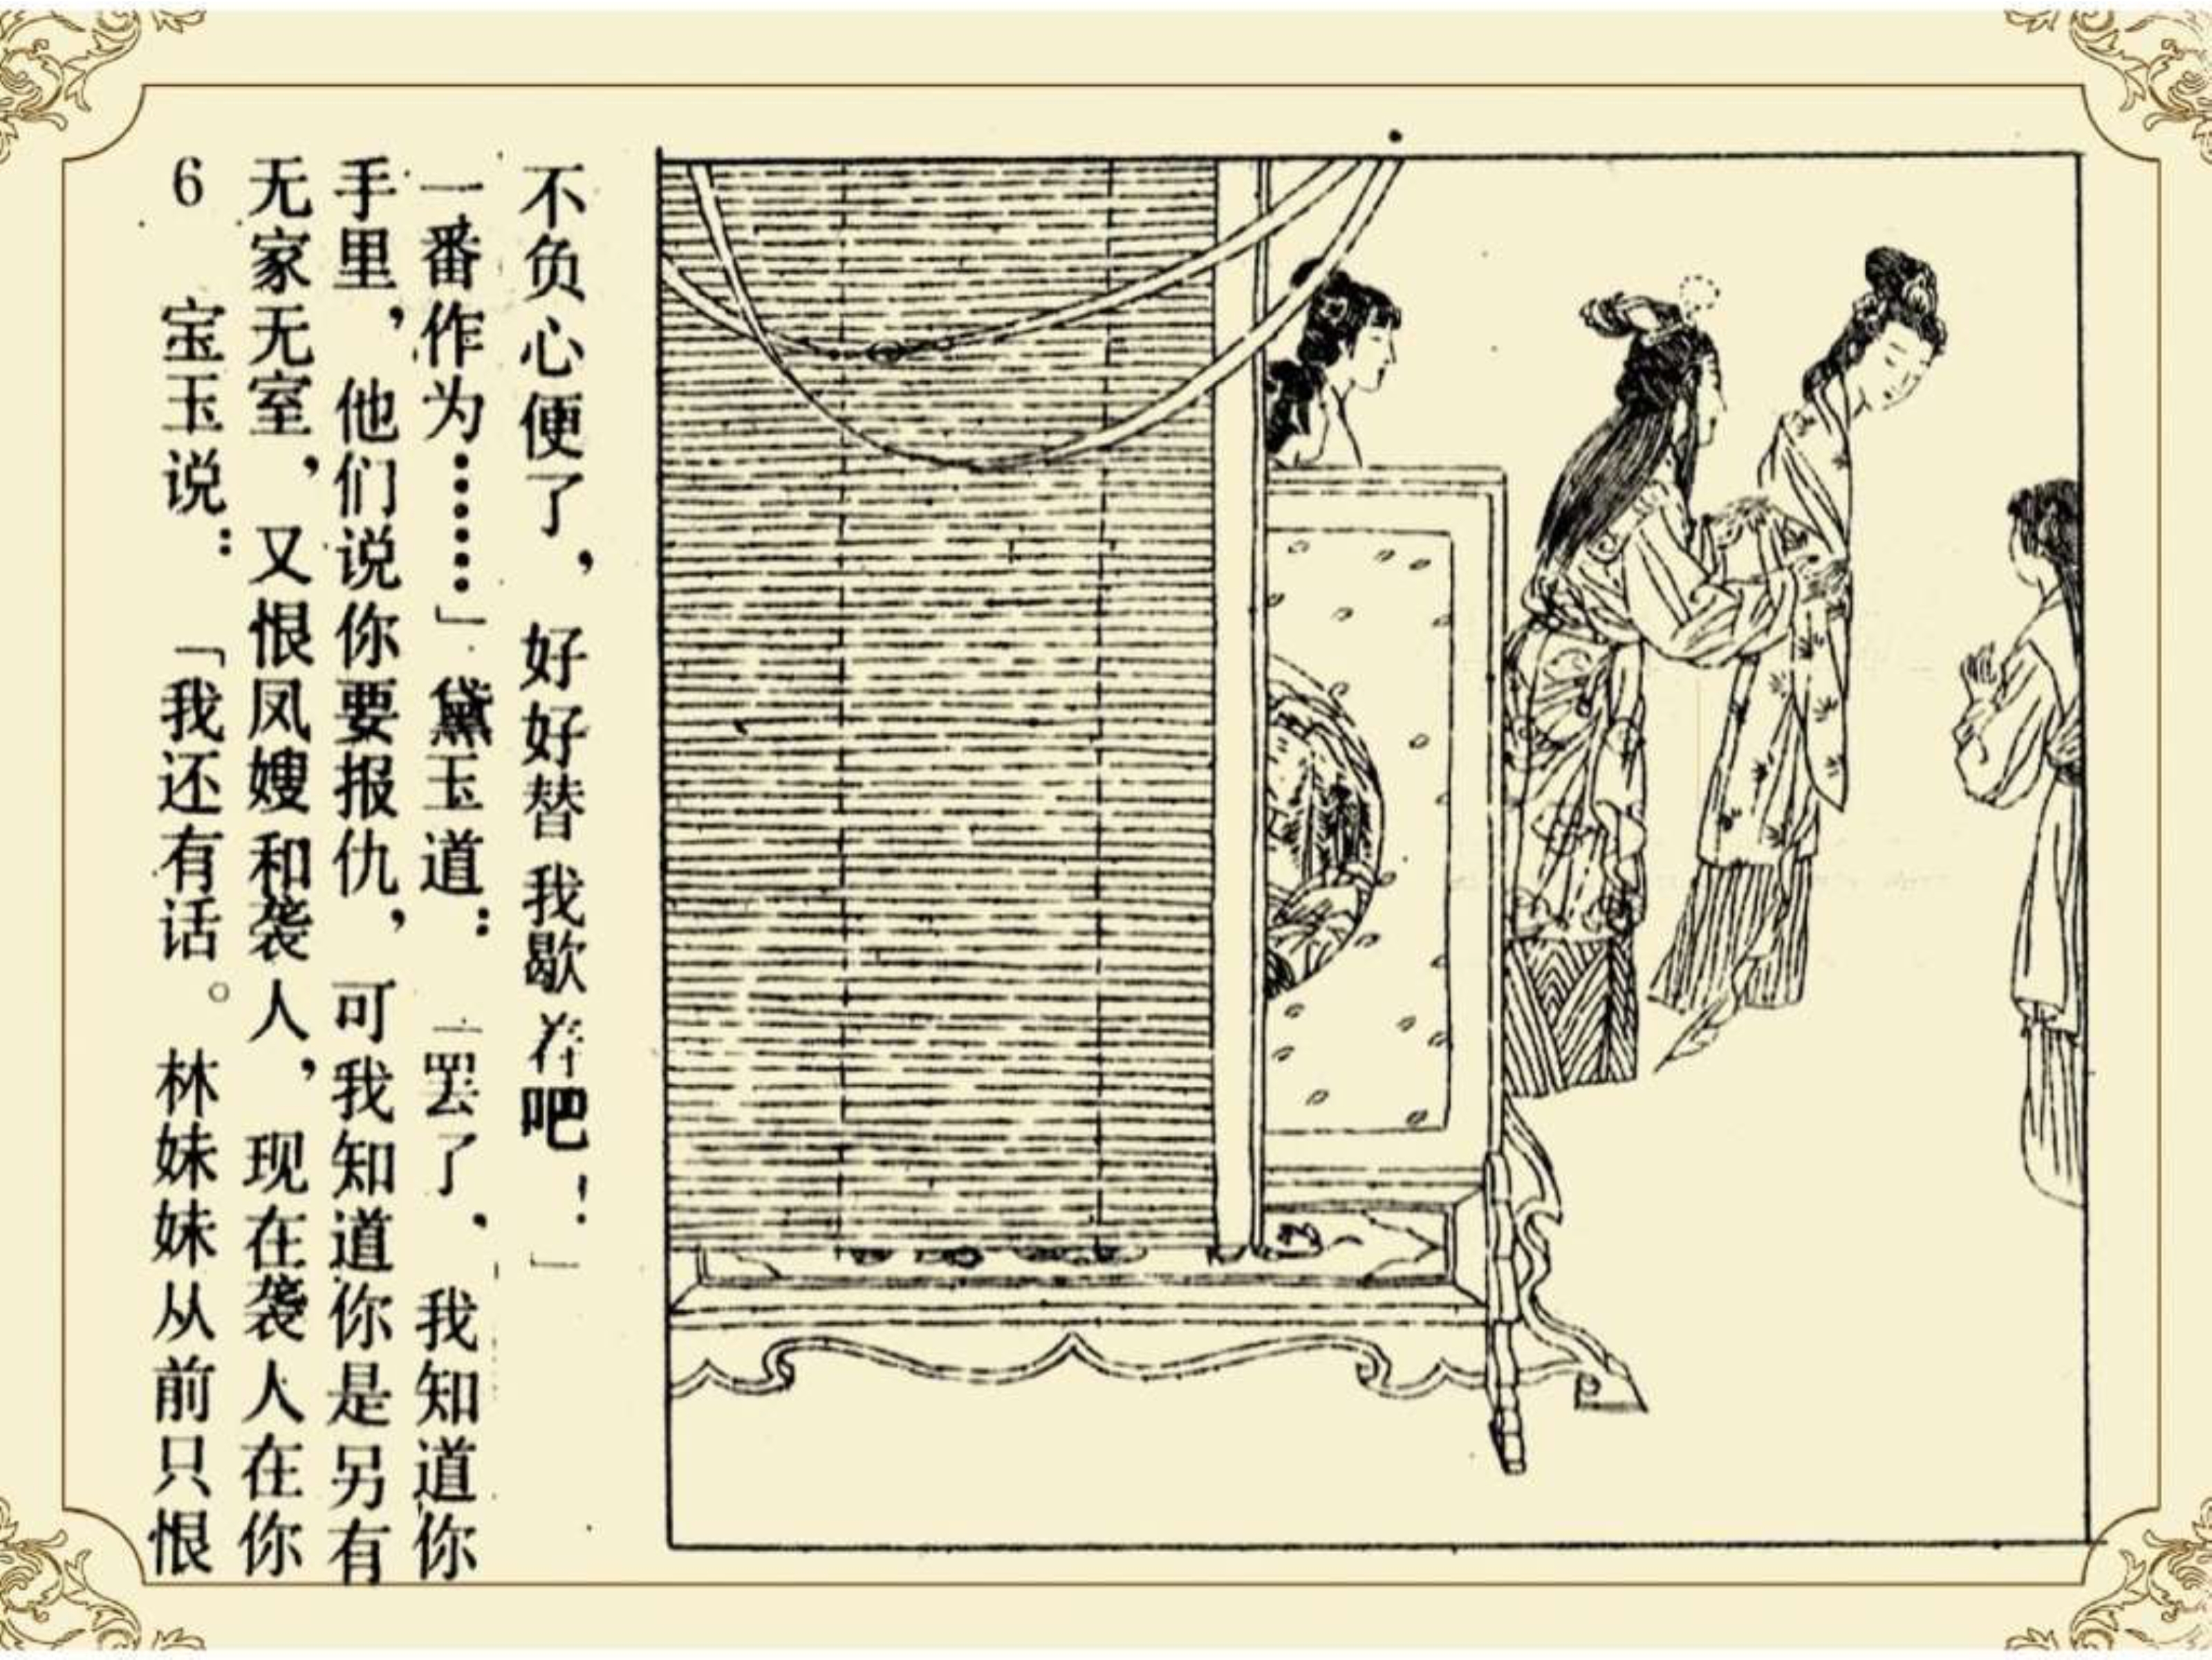 6 宝玉说：「我还有话。林妹妹从前只恨
无家无室，又恨凤嫂和袭人，现在袭人在你
手里，他们说你要报仇，可我知道你是另有
一番作为……」黛玉道：「罢了，我知道你
不负心便了，好好替我歇着吧！」